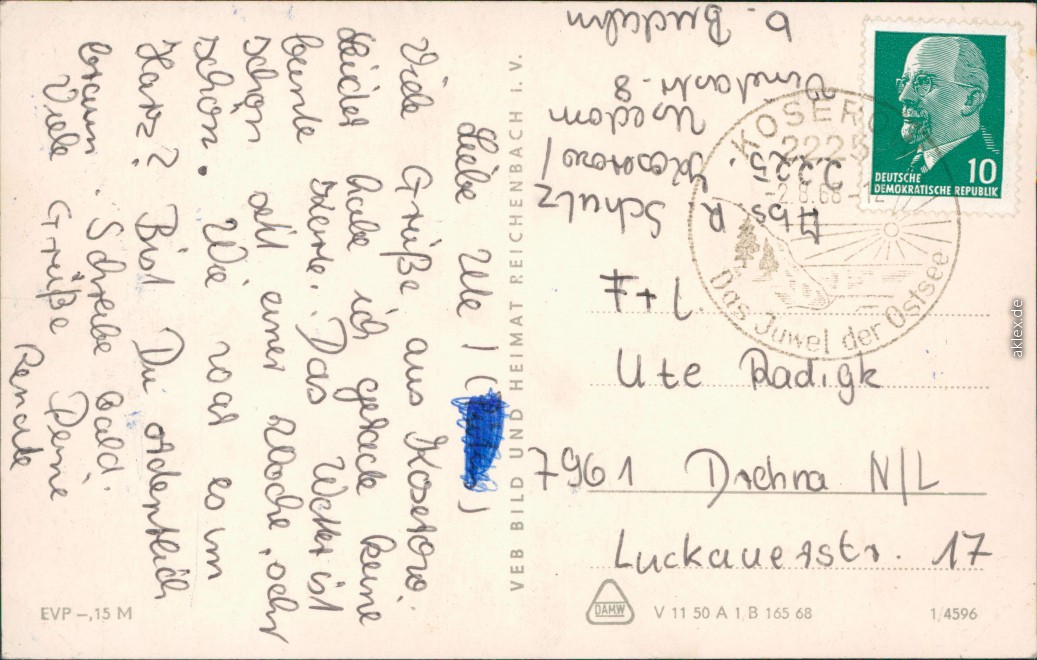 Liebe Ute! (
)
Viele Grüße aus Koserow.
Leider habe ich gerade keine
bunte Karte. Das Wetter ist
schön seit einer Woche, sehr
schön. Wie war es im
Harz? Bist Du ordentlich
braun. Schreibe bald.
Viele Grüße Deine
Renate
VEB BILD UND HEIMAT REICHENBACH I. V.
Abs R Schulz
2225 Koserow/
Usedom
8
b.
DEUTSCHE
DEMOKRATISCHE REPUBLIK
10
KOSEROW
2225
-2.8.68-12
Das Juwel der Ostsee
Ute Radigk
7961 Drehna N/L
Luckauerstr. 17
EVP -,15 M
DAMW
V 11 50 A 1 B 165 68
1/4596
aklex.de